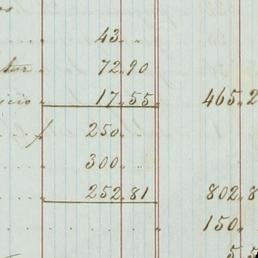 43..
72.90
17.55 465.2
f 250.
300.
252.81 802.8
150.
5 5